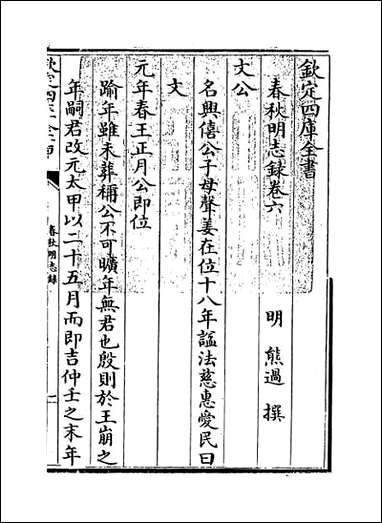 欽定四庫全書
春秋明志録卷六
明 熊過 撰
文公
名興僖公子母聲姜在位十八年諡法慈惠愛民曰
文
元年春王正月公即位
踰年雖未葬稱公不可曠年無君也殷則於王崩之
年嗣君改元太甲以二十五月而即吉仲壬之末年
欽定四庫全書
春秋明志録
一